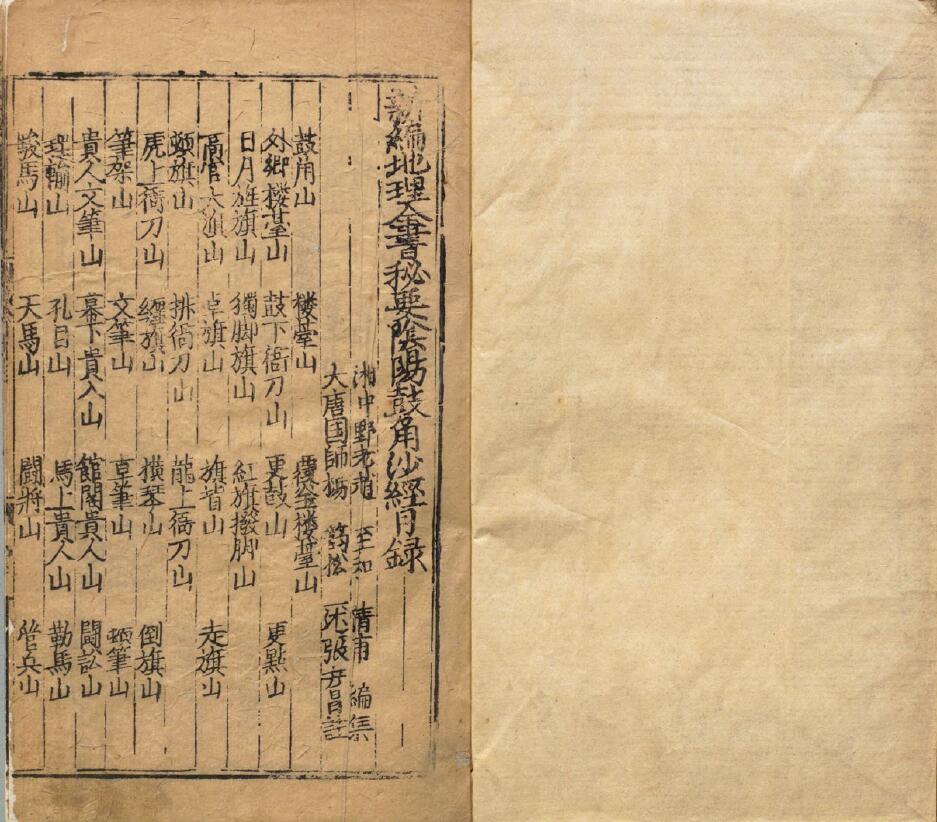 新編地理全書秘要陰陽鼓角沙經目録
湘中野老者 至和 清甫 編集
大唐国師楊 筠松 述 張 註
鼓角山 楼臺山 金楼臺山
外郷楼臺山 鼓下衙刀山 更鼓山 更點山
日月旌旗山 獨脚旗山 紅旗撥脚山
高官大旗山 卓旗山 旗山 走旗山
頓旗山 排衙刀山 龍上衙刀山
虎上衙刀山 纏旗山 横琴山 倒旗山
筆架山 文筆山 草筆山 頓筆山
貴人文筆山 幕下貴人山 館閣貴人山 鬪訟山
山 孔目山 馬上貴人山 勒馬山
駿馬山 天馬山 鬪将山 管兵山